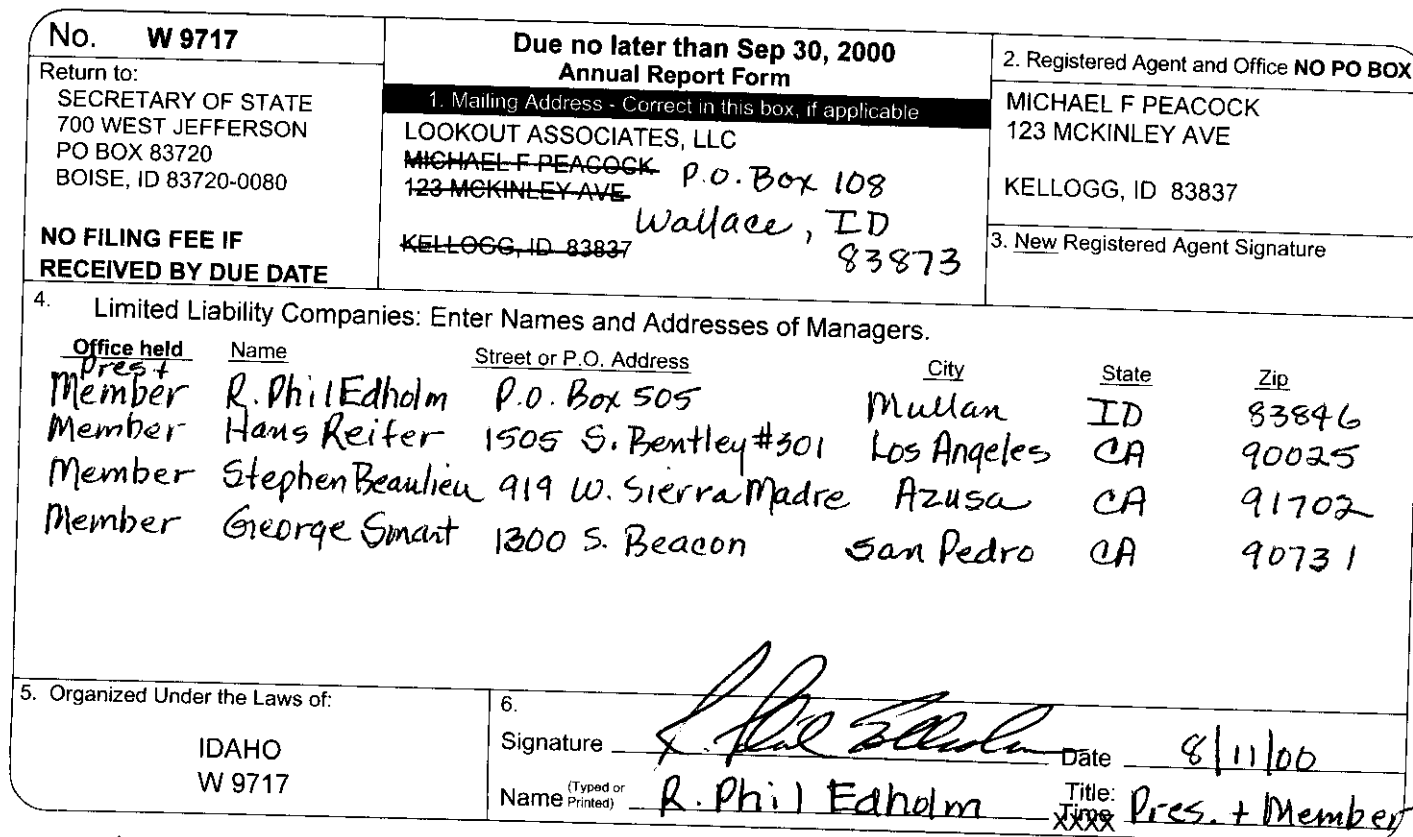 No. W 9717
Return to:
SECRETARY OF STATE
700 WEST JEFFERSON
PO BOX 83720
BOISE, ID 83720-0080
NO FILING FEE IF
RECEIVED BY DUE DATE
Due no later than Sep 30, 2000
Annual Report Form
1. Mailing Address - Correct in this box, if applicable
LOOKOUT ASSOCIATES, LLC
MICHAEL F PEACOCK
123 MCKINLEY AVE P.O. Box 108
Wallace, ID
KELLOGG, ID 83837 83873
2. Registered Agent and Office NO PO BOX
MICHAEL F PEACOCK
123 MCKINLEY AVE
KELLOGG, ID 83837
3. New Registered Agent Signature
4. Limited Liability Companies: Enter Names and Addresses of Managers.
Office held Name Street or P.O. Address City State Zip
Pres +
Member R. Phil Edholm P.O. Box 505 Mullan ID 83846
Member Hans Reifer 1505 S. Bentley #301 Los Angeles CA 90025
Member Stephen Beaulieu 919 W. Sierra Madre Azusa CA 91702
Member George Smart 1300 S. Beacon San Pedro CA 90731
5. Organized Under the Laws of:
IDAHO
W 9717
6.
Signature R. Phil Edholm Date 8/11/00
Name (Typed or Printed) R. Phil Edholm Title: Time Pres. + Member